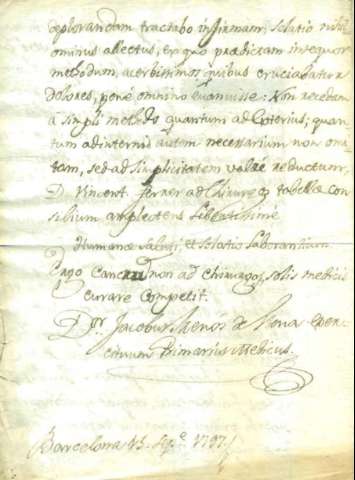 deplorandam tractabo infirmam, solatio nihil
ominus allectus, ex quo prædictam insequor
methodum, acerbissimos quibus cruciabatur
dolores, penè omnino evanuisse: Non recedam
à simplici methodo quantum ad exterius; quan
tum ad internum autem necessarium non ona
tam, sed ad simplicitatem valdè reductum,
D. Vincent. Ferrer ad Chirurg tabellæ con
silium amplectens libentissimè
Humanæ saluti, et solatio laborantium.
Ergo Cancrum non ad chirurgos, solis medicis
curare competit.
Dor. Jacobus Menos de Llena
cinuum Primarius Medicus.
Barcelona 13. Sepe. 1797